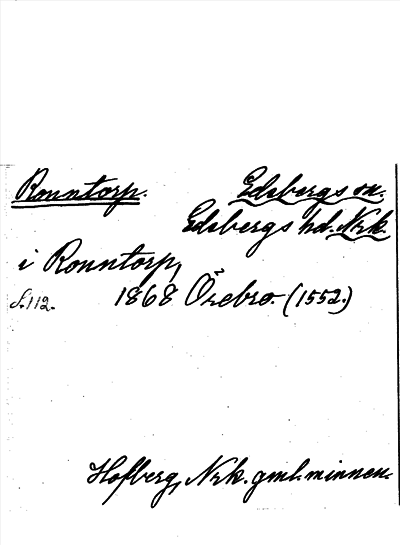 Ronntorp. Edsbergs sn.
Edsbergs hd. Nrk.
i Ronntorp,
S. 112. 1868 Örebro (1552.)
Hofberg, Nrk. gml. minnen.